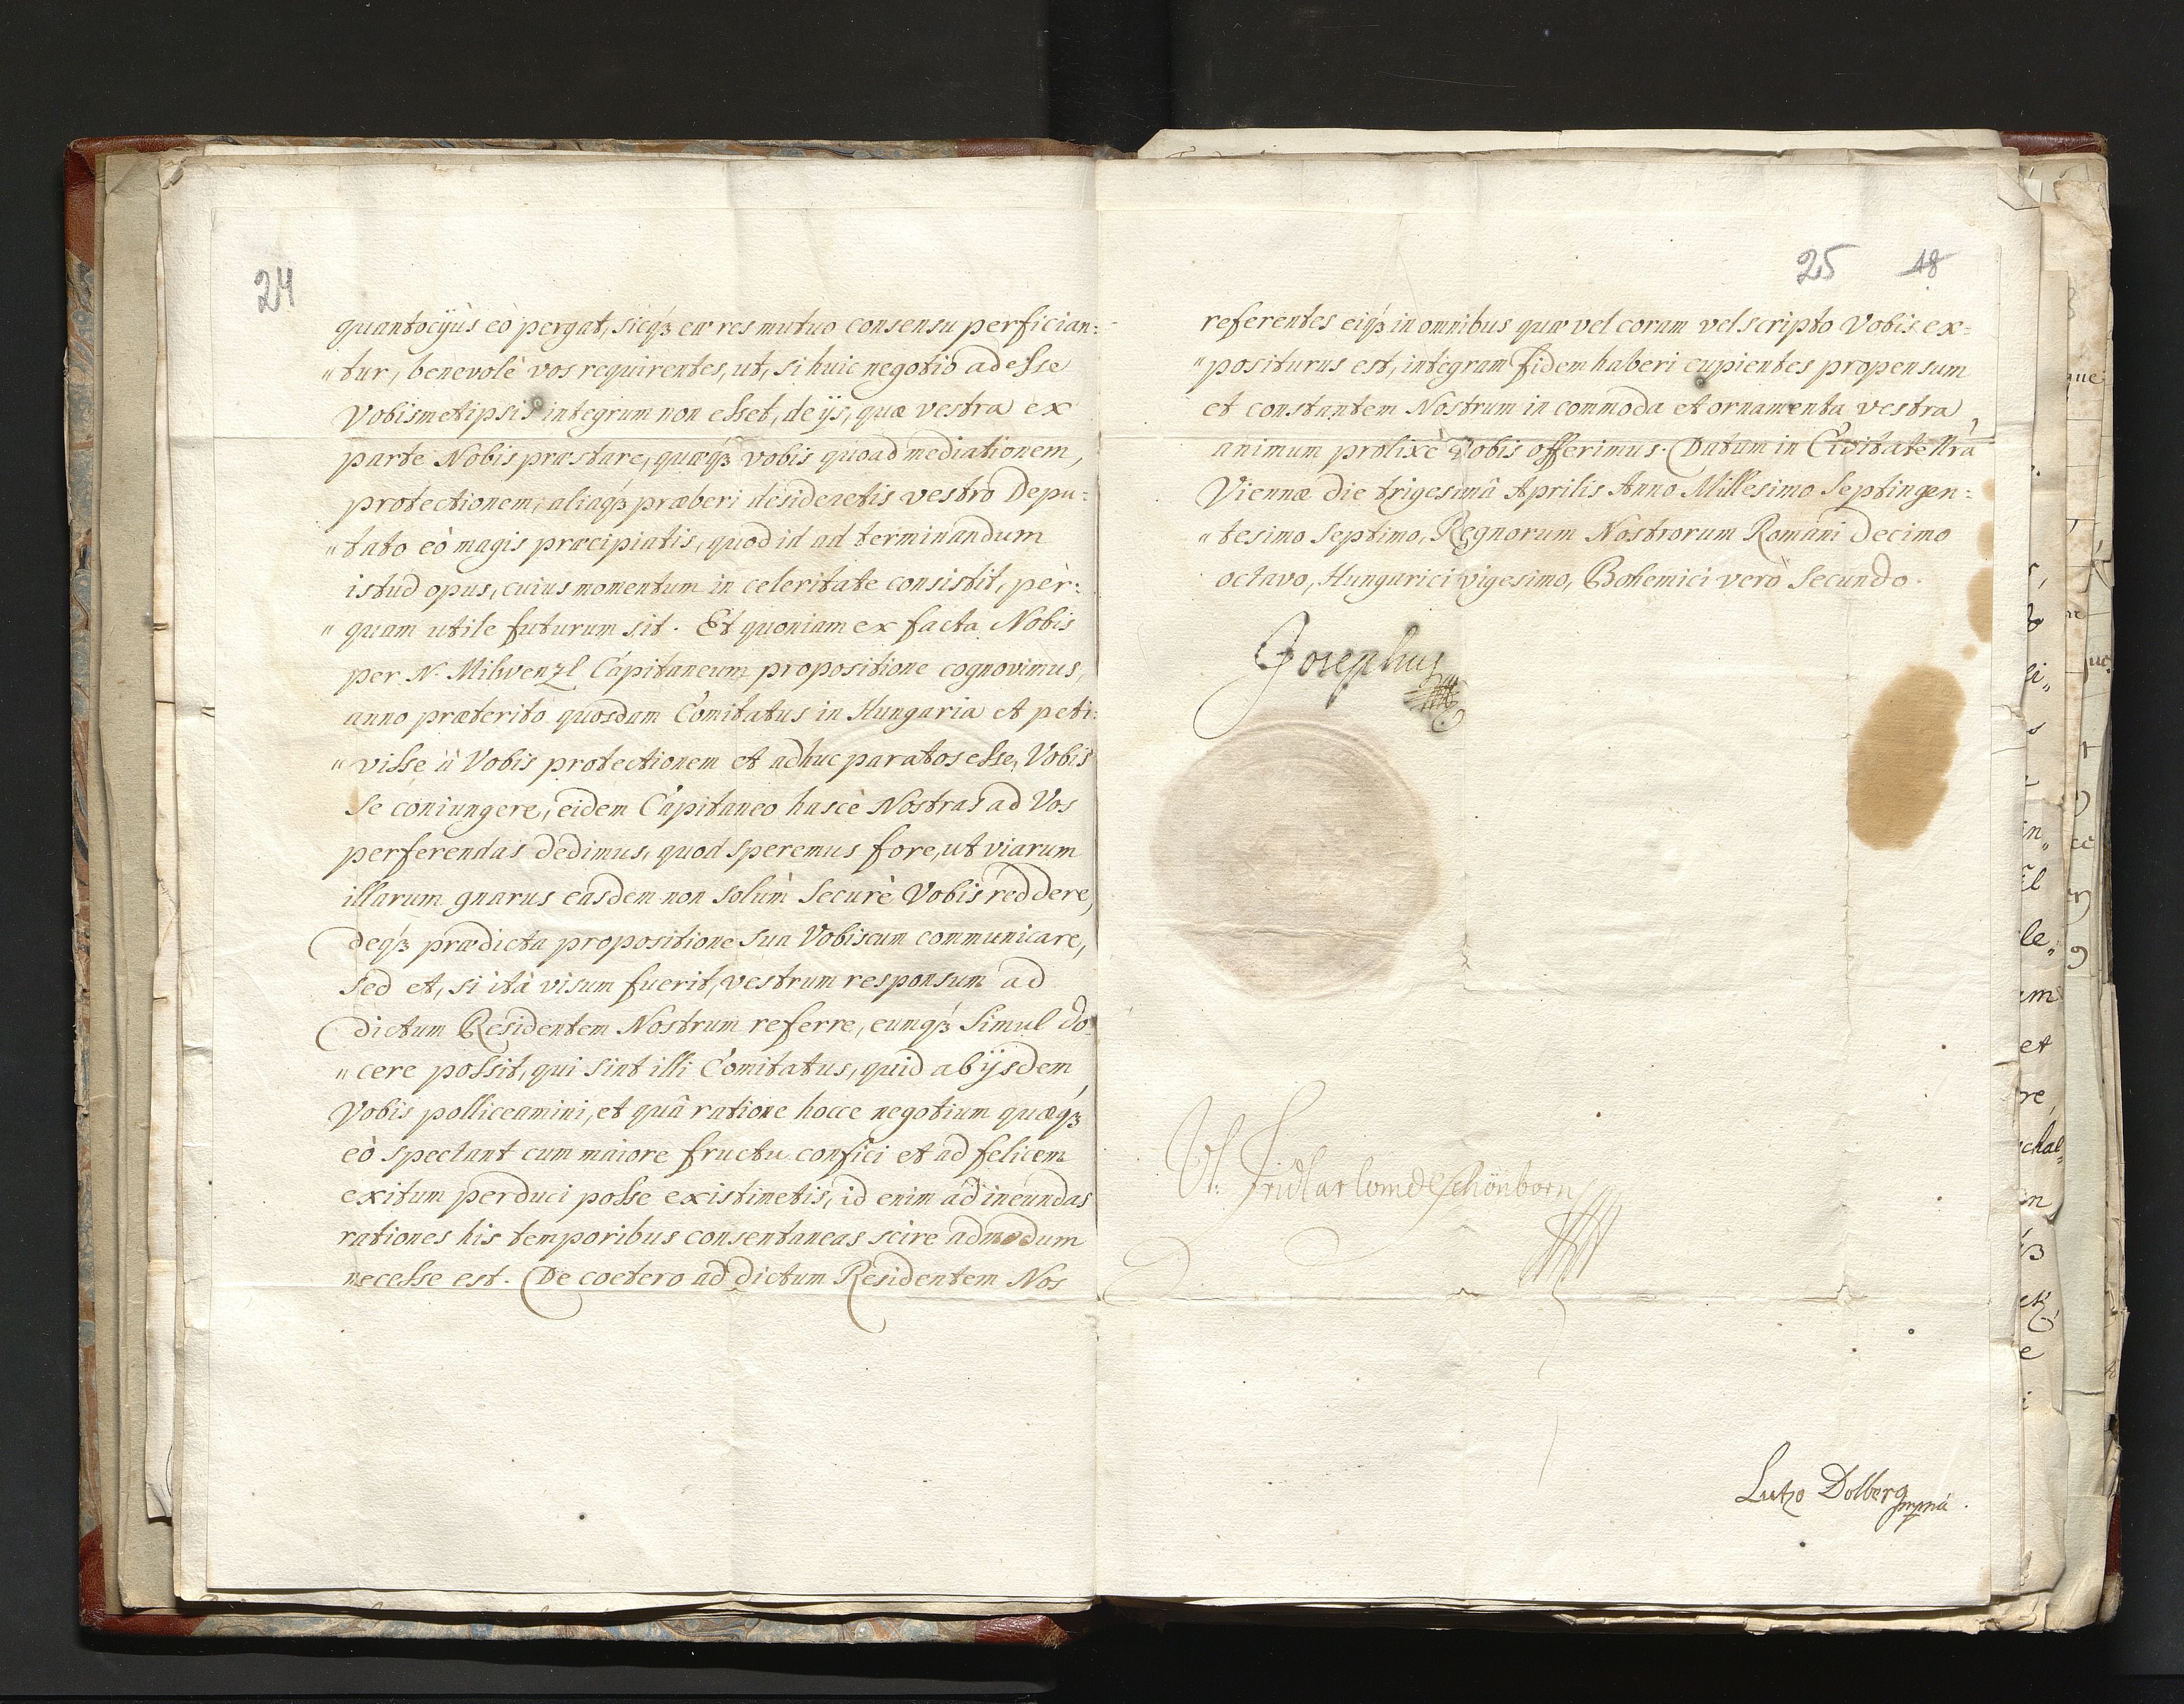 24
quantocyùs eò pergat, sicq́ꝫ eæ res mutuo consensu perfician:
"tur, benevolè vos requirentes, ut, si huic negotio adesse
Vobismetipsis integrum non esset, de ijs, quæ vestra ex
parte Nobis præstare, quæq́ꝫ vobis quoad mediationem,
protectionem, aliaq́ꝫ præberi desideretis vestro Depu:
"tato eò magis præcipiatis, quod id ad terminandum
istud opus, cuius momentum in celeritate consistit, per:
"quam utile futurum sit. Et quoniam ex facta Nobis
per N. Milwenzl Capitaneum propositione cognovimus,
anno præterito quosdam Comitatus in Hungaria et peti:
"visse à Vobis protectionem et adhuc paratos esse, Vobis
se coniungere, eidem Capitaneo hasce Nostras ad Vos
perferendas dedimus, quod speremus fore, ut viarum
illarum gnarus easdem non solùm securè Vobis reddere,
deq́ꝫ prædicta propositione sua Vobiscum communicare,
sed et, si ità visum fuerit, vestrum responsum ad
dictum Residentem Nostrum referre, eumq́ꝫ simul do:
"cere possit, qui sint illi Comitatus, quid ab ijsdem
Vobis polliceamini, et quâ ratione hocce negotium quæq́ꝫ
eò spectant cum maiore fructu confici et ad felicem
exitum perduci posse existimetis, id enim ad ineundas
rationes his temporibus consentaneas scire admodum
necesse est. De coetero ad dictum Residentem Nos
25 18
referentes eiq́ꝫ in omnibus quæ vel coram vel scripto Vobis ex=
"positurus est, integram fidem haberi cupientes propensum
et constantem Nostrum in commoda et ornamenta vestra
animum prolixè Vobis offerimus. Datum in Civitate Nrâ
Viennæ die trigesimâ Aprilis Anno Millesimo Septingen:
"tesimo Septimo, Regnorum Nostrorum Romani Decimo
octavo, Hungarici vigesimo, Bohemici verò Secundo.
Josephus
Vt. Frid Carl com de Schönborn
Lutzo Dolberg
mpmá.